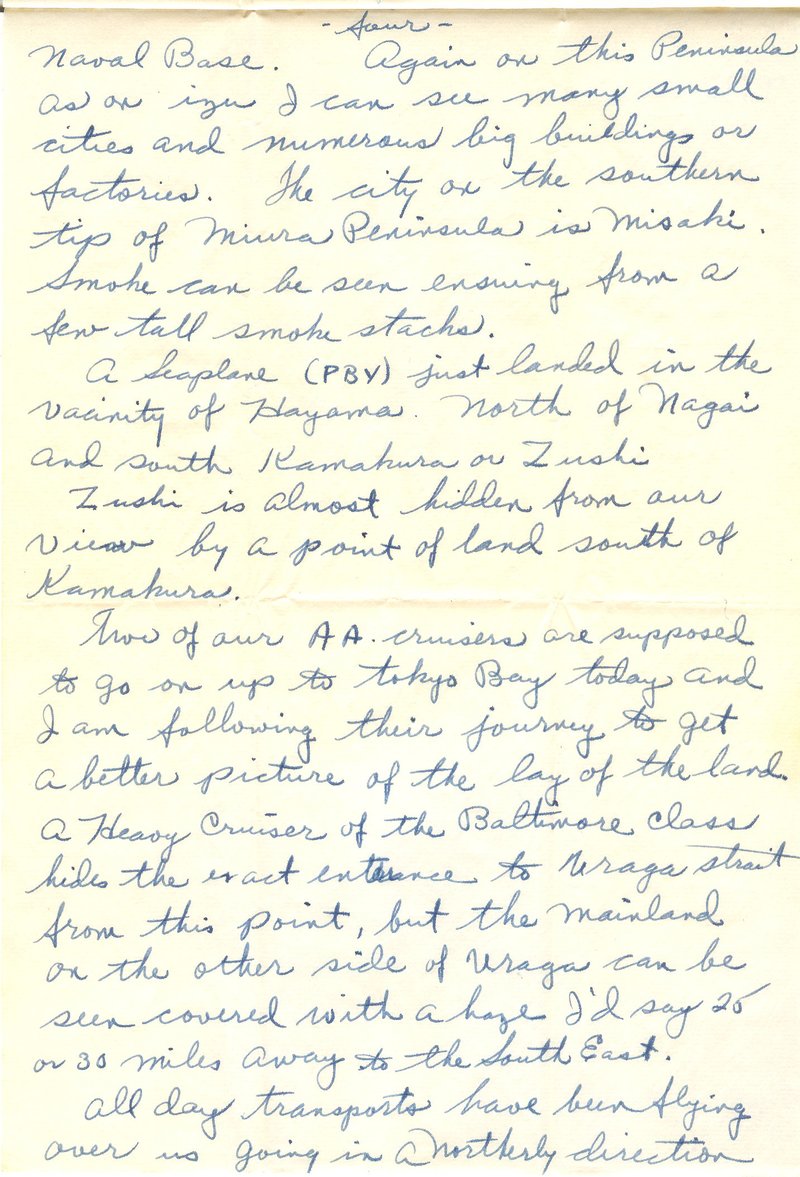 - four -
Naval Base. Again on this Peninsula
as on izu I can see many small
cities and numerous big buildings or
factories. The city on the southern
tip of Miura Peninsula is Misaki.
Smoke can be seen ensuing from a
few tall smoke stacks.
A Seaplane (PBY) just landed in the
vacinity of Hayama. North of Nagai
and south Kamakura or Zushi
Zushi is almost hidden from our
view by a point of land south of
Kamakura.
Two of our A A. cruisers are supposed
to go on up to tokyo Bay today and
I am following their journey to get
a better picture of the lay of the land.
A Heavy Cruiser of the Baltimore class
hides the exact entrance to Uraga strait
from this point, but the mainland
on the other side of Uraga can be
seen covered with a haze I'd say 25
or 30 miles away to the South East.
All day transports have been flying
over us going in a northerly direction